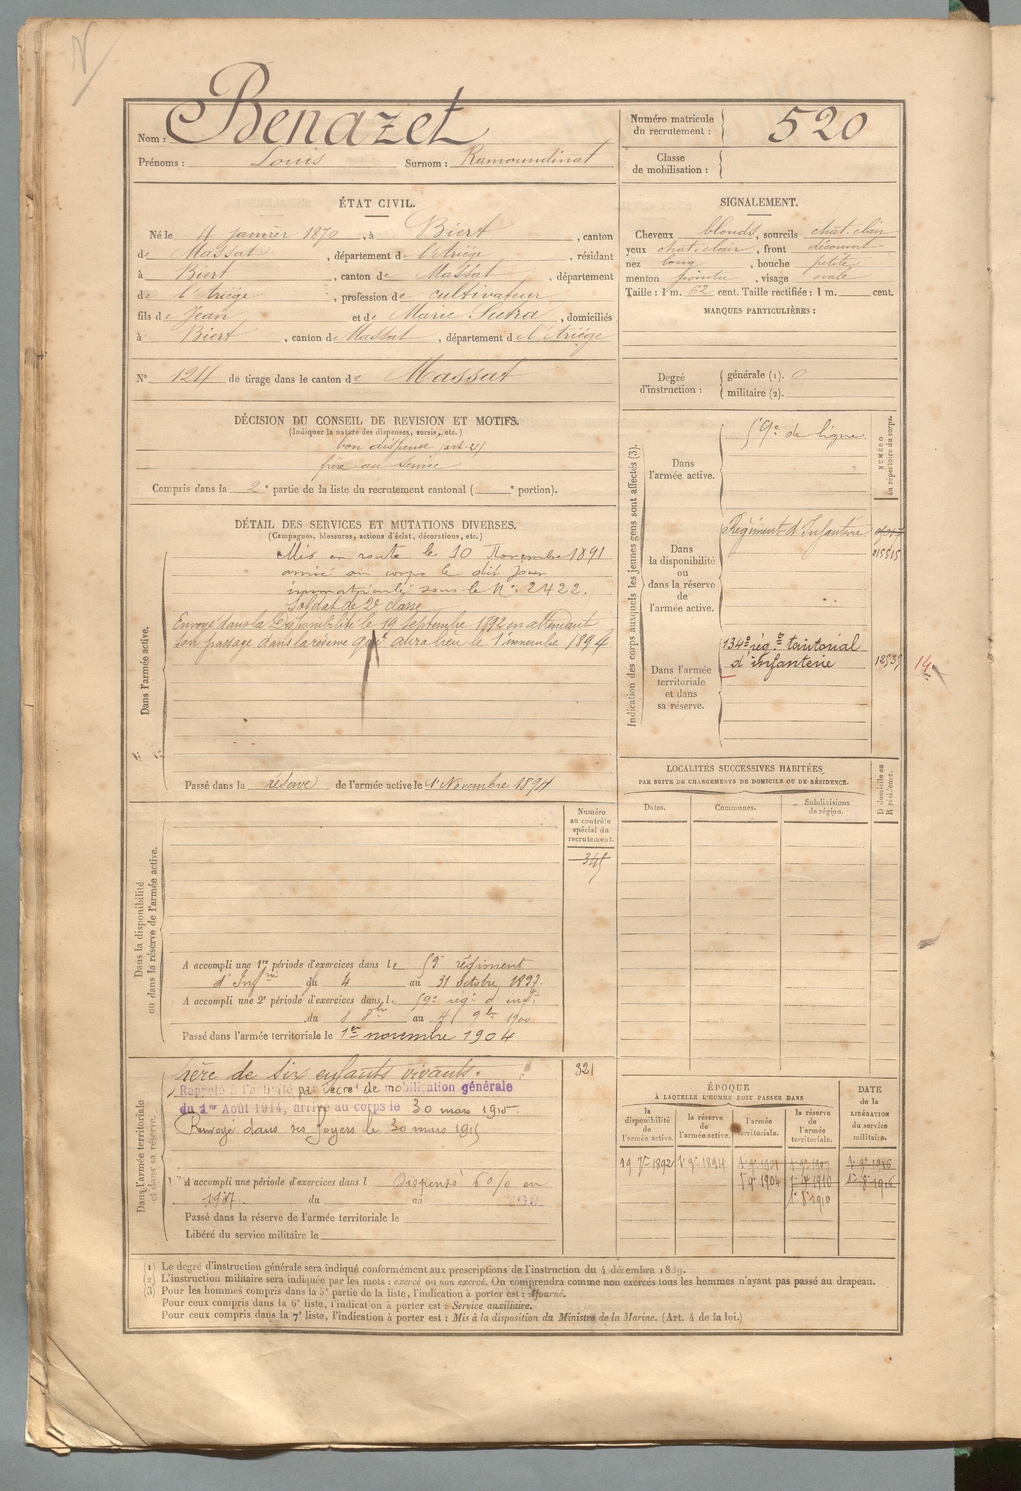 Nom : Benazet
Prénoms : Louis Surnom : Ramoundinat
Numéro matricule du recrutement : 520
Classe de mobilisation :
ÉTAT CIVIL.
Né le 4 janvier 1870, à Biert, canton
de Massat, département de l'Ariége, résidant
à Biert, canton de Massat, département
de l'Ariége, profession de cultivateur
fils de Jean et de Marie Sutra, domiciliés
à Biert, canton de Massat, département de l'Ariége
N° 124 de tirage dans le canton de Massat
SIGNALEMENT.
Cheveux blonds, sourcils chat. clair
yeux chat. clair, front découvert
nez long, bouche petite
menton pointu, visage ovale
Taille : 1 m. 52 cent. Taille rectifiée : 1 m. cent.
MARQUES PARTICULIÈRES :
Degré d'instruction :
générale (1). 0
militaire (2).
DÉCISION DU CONSEIL DE REVISION ET MOTIFS.
(Indiquer la nature des dispenses, sursis, etc.)
bon dispensé (art. 21)
frère au service
Compris dans la 2e partie de la liste du recrutement cantonal ( e portion).
DÉTAIL DES SERVICES ET MUTATIONS DIVERSES.
(Campagnes, blessures, actions d'éclat, décorations, etc.)
Dans l'armée active.
Mis en route le 10 Novembre 1891
arrivé au corps le dit jour
immatriculé sous le N°. 2422.
Soldat de 2e classe
Envoyé dans la Disponibilité le 19 septembre 1892 en attendant
son passage dans la réserve qui aura lieu le 1er novembre 1894
Passé dans la réserve de l'armée active le 1er Novembre 1894
Indication des corps auxquels les jeunes gens sont affectés (3).
NUMÉRO au répertoire du corps.
Dans l'armée active.
59e de ligne
Dans la disponibilité ou dans la réserve de l'armée active.
Régiment d'Infanterie
015515
Dans l'armée territoriale et dans sa réserve.
134e rég. territorial
d'infanterie
LOCALITÉS SUCCESSIVES HABITÉES
PAR SUITE DE CHANGEMENTS DE DOMICILE OU DE RÉSIDENCE.
Dates. Communes. Subdivisions de région.
D domicile ou R résidence.
Dans la disponibilité ou dans la réserve de l'armée active.
Numéro au contrôle spécial du recrutement.
345
A accompli une 1re période d'exercices dans le 59e régiment
d'Infrie du 4 au 31 octobre 1897.
A accompli une 2e période d'exercices dans le 59e rég. d'infie
du 8 8bre au 4 9bre 1900
Passé dans l'armée territoriale le 1er novembre 1904
Dans l'armée territoriale et dans sa réserve.
321
Père de six enfants vivants.
Rappelé à l'activité par Décret de mobilisation générale
du 1er Août 1914, arrivé au corps le 30 mars 1915.
Renvoyé dans ses foyers le 30 mars 1915
A accompli une période d'exercices dans l Dispensé 6 0/0 en
1907 du au
Passé dans la réserve de l'armée territoriale le
Libéré du service militaire le
ÉPOQUE
À LAQUELLE L'HOMME DOIT PASSER DANS
la disponibilité de l'armée active.
la réserve de l'armée active.
l'armée territoriale.
la réserve de l'armée territoriale.
DATE de la LIBÉRATION du service militaire.
19 7re 1892 1r 9e 1894
1r 9e 1904
(1) Le degré d'instruction générale sera indiqué conformément aux prescriptions de l'instruction du 4 décembre 1889.
(2) L'instruction militaire sera indiquée par les mots : exercé ou non exercé. On comprendra comme non exercés tous les hommes n'ayant pas passé au drapeau.
(3) Pour les hommes compris dans la 5e partie de la liste, l'indication à porter est : Ajourné.
Pour ceux compris dans la 6e liste, l'indication à porter est : Service auxiliaire.
Pour ceux compris dans la 7e liste, l'indication à porter est : Mis à la disposition du Ministre de la Marine. (Art. 4 de la loi.)